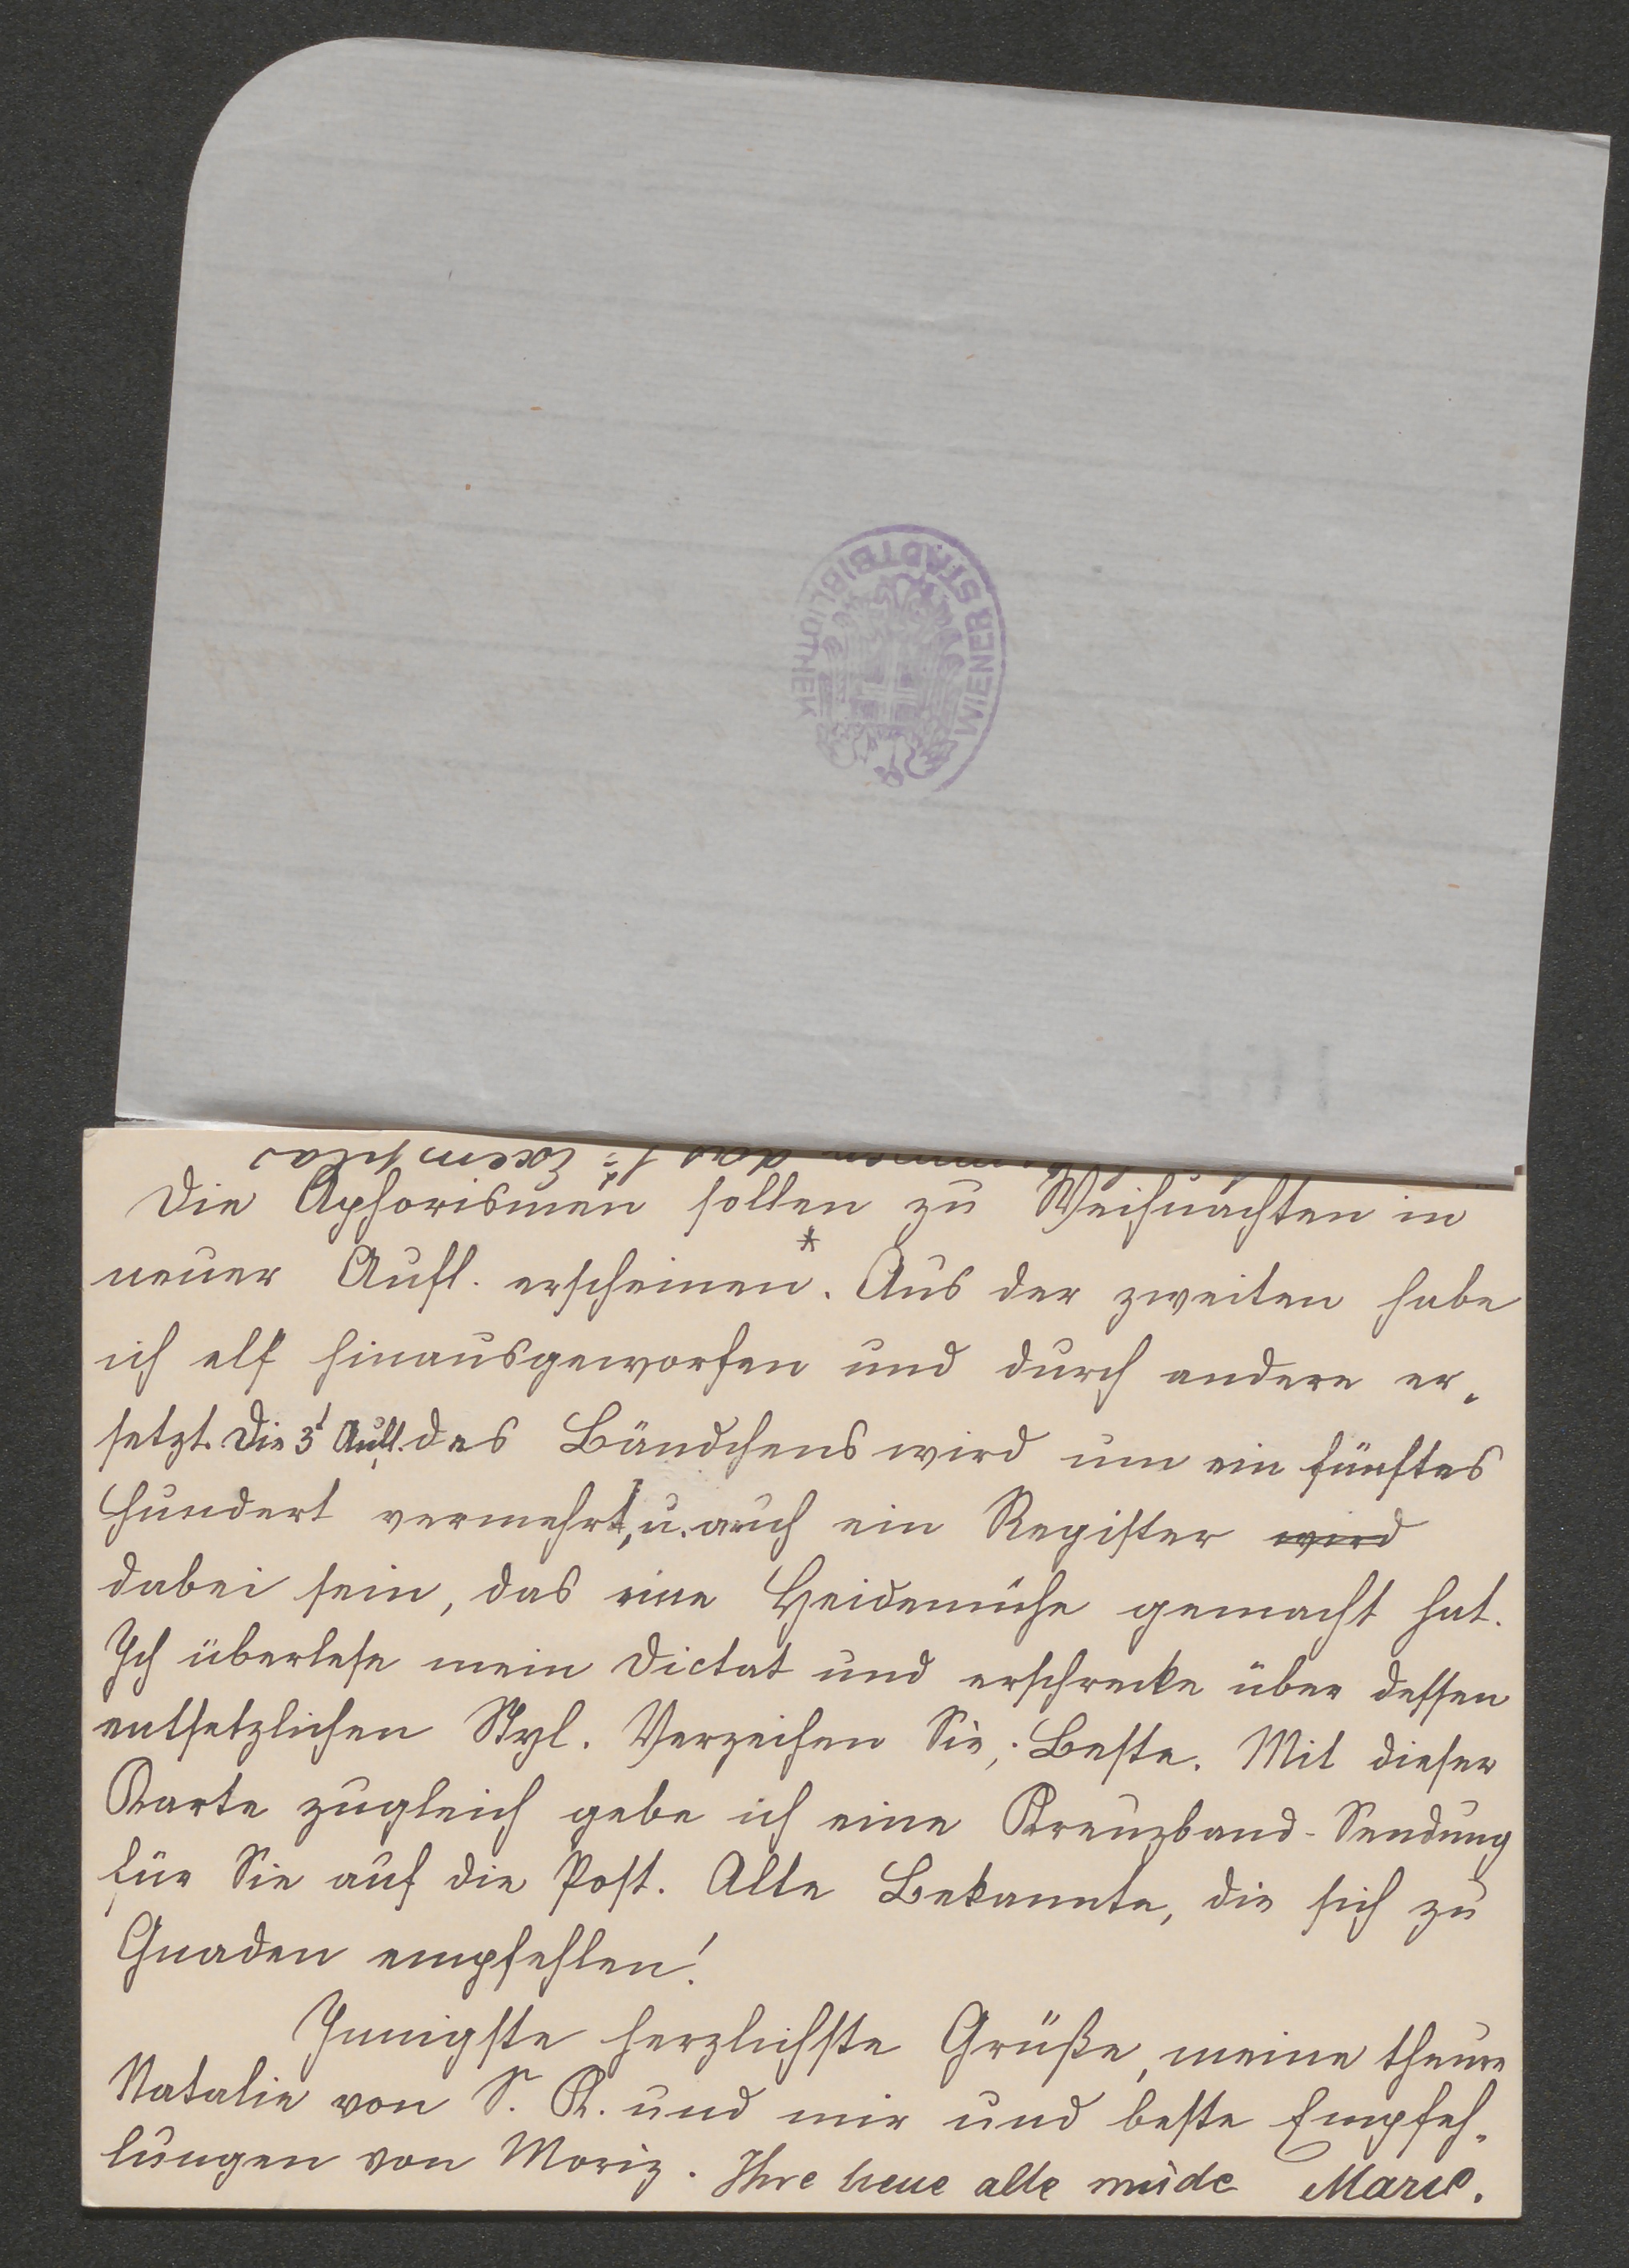 WIENER STADTBIBLIOTHEK
kommen das 1te Exemplar
Die Aphorismen sollen zu Weihnachten in
neuer Aufl. erscheinen.* Aus der zweiten habe
ich elf hinausgeworfen und durch andere er-
setzt. Die 3t Aufl. des Bändchens wird um ein fünftes
Hundert vermehrt, u. auch ein Register wird
dabei sein, das eine Heidenmühe gemacht hat.
Ich überlese mein Dictat und erschrecke über dessen
entsetzlichen Styl. Verzeihen Sie, Beste. Mit dieser
Karte zugleich gebe ich eine Kreuzband-Sendung
für Sie auf die Post. Alte Bekannte, die sich zu
Gnaden empfehlen!
Innigste herzlichste Grüße, meine theure
Natalie von S. K. und mir und beste Empfeh-
lungen von Moriz. Ihre treue alte müde Marie.